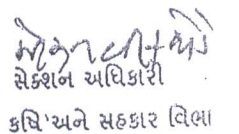 સેકશન અધિકારી
કૃષિ અને સહકાર વિભા